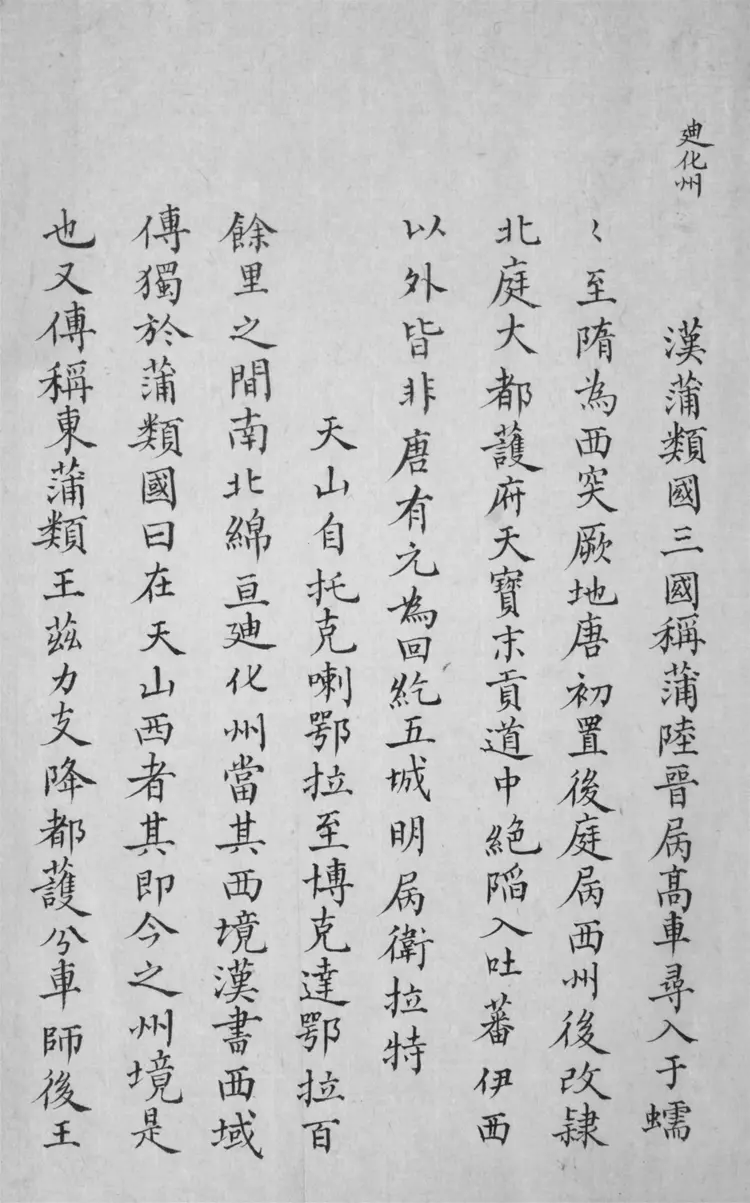 廸化州
漢蒲類國三國稱蒲陸晉屬高車尋入于蠕
〻至隋為西突厥地唐初置後庭屬西州後改隸
北庭大都護府天寶末貢道中絕陷入吐蕃伊西
以外皆非唐有元為回紇五城明屬衛拉特
天山自托克喇鄂拉至博克達鄂拉百
餘里之間南北綿亘廸化州當其西境漢書西域
傳獨於蒲類國曰在天山西者其即今之州境是
也又傳稱東蒲類王茲力支降都護分車師後王